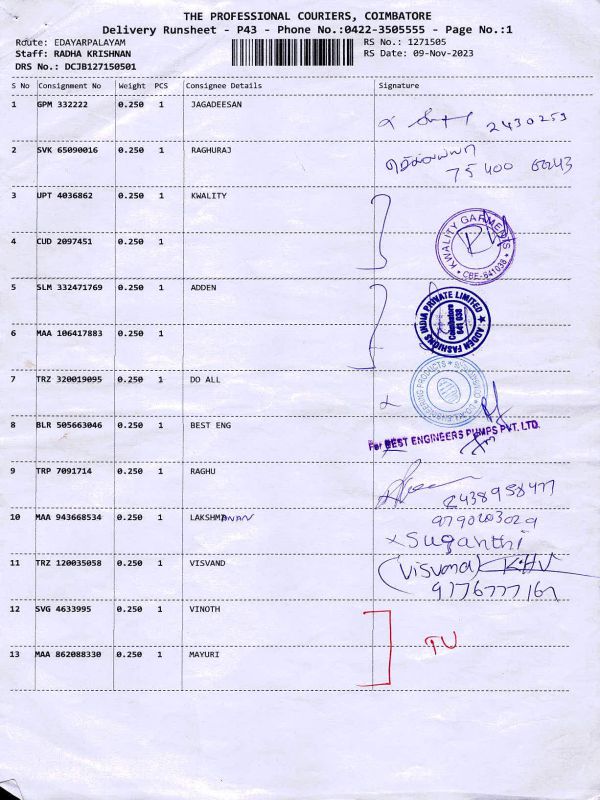 THE PROFESSIONAL COURIERS, COIMBATORE
Delivery Runsheet - P43 - Phone No.:0422-3505555 - Page No.:1
Route: EDAYARPALAYAM RS No.: 1271505
Staff: RADHA KRISHNAN RS Date: 09-Nov-2023
DRS No.: DCJB127150501
S No Consignment No Weight PCS Consignee Details Signature
1 GPM 332222 0.250 1 JAGADEESAN 2430253
2 SVK 65090016 0.250 1 RAGHURAJ
75400
3 UPT 4036862 0.250 1 KWALITY
KWALITY GARMENTS
CBE-641038
4 CUD 2097451 0.250 1
5 SLM 332471769 0.250 1 ADDEN
ADDEN FASHIONS INDIA PRIVATE LIMITED
Coimbatore
641 038
6 MAA 106417883 0.250 1
7 TRZ 320019095 0.250 1 DO ALL
8 BLR 505663046 0.250 1 BEST ENG
For BEST ENGINEERS PUMPS PVT. LTD.
9 TRP 7091714 0.250 1 RAGHU
2438958477
10 MAA 943668534 0.250 1 LAKSHMANAN
9790203029
x Suganthi
11 TRZ 120035058 0.250 1 VISVAND
(Visvand)
9176777167
12 SVG 4633995 0.250 1 VINOTH
TU
13 MAA 862088330 0.250 1 MAYURI